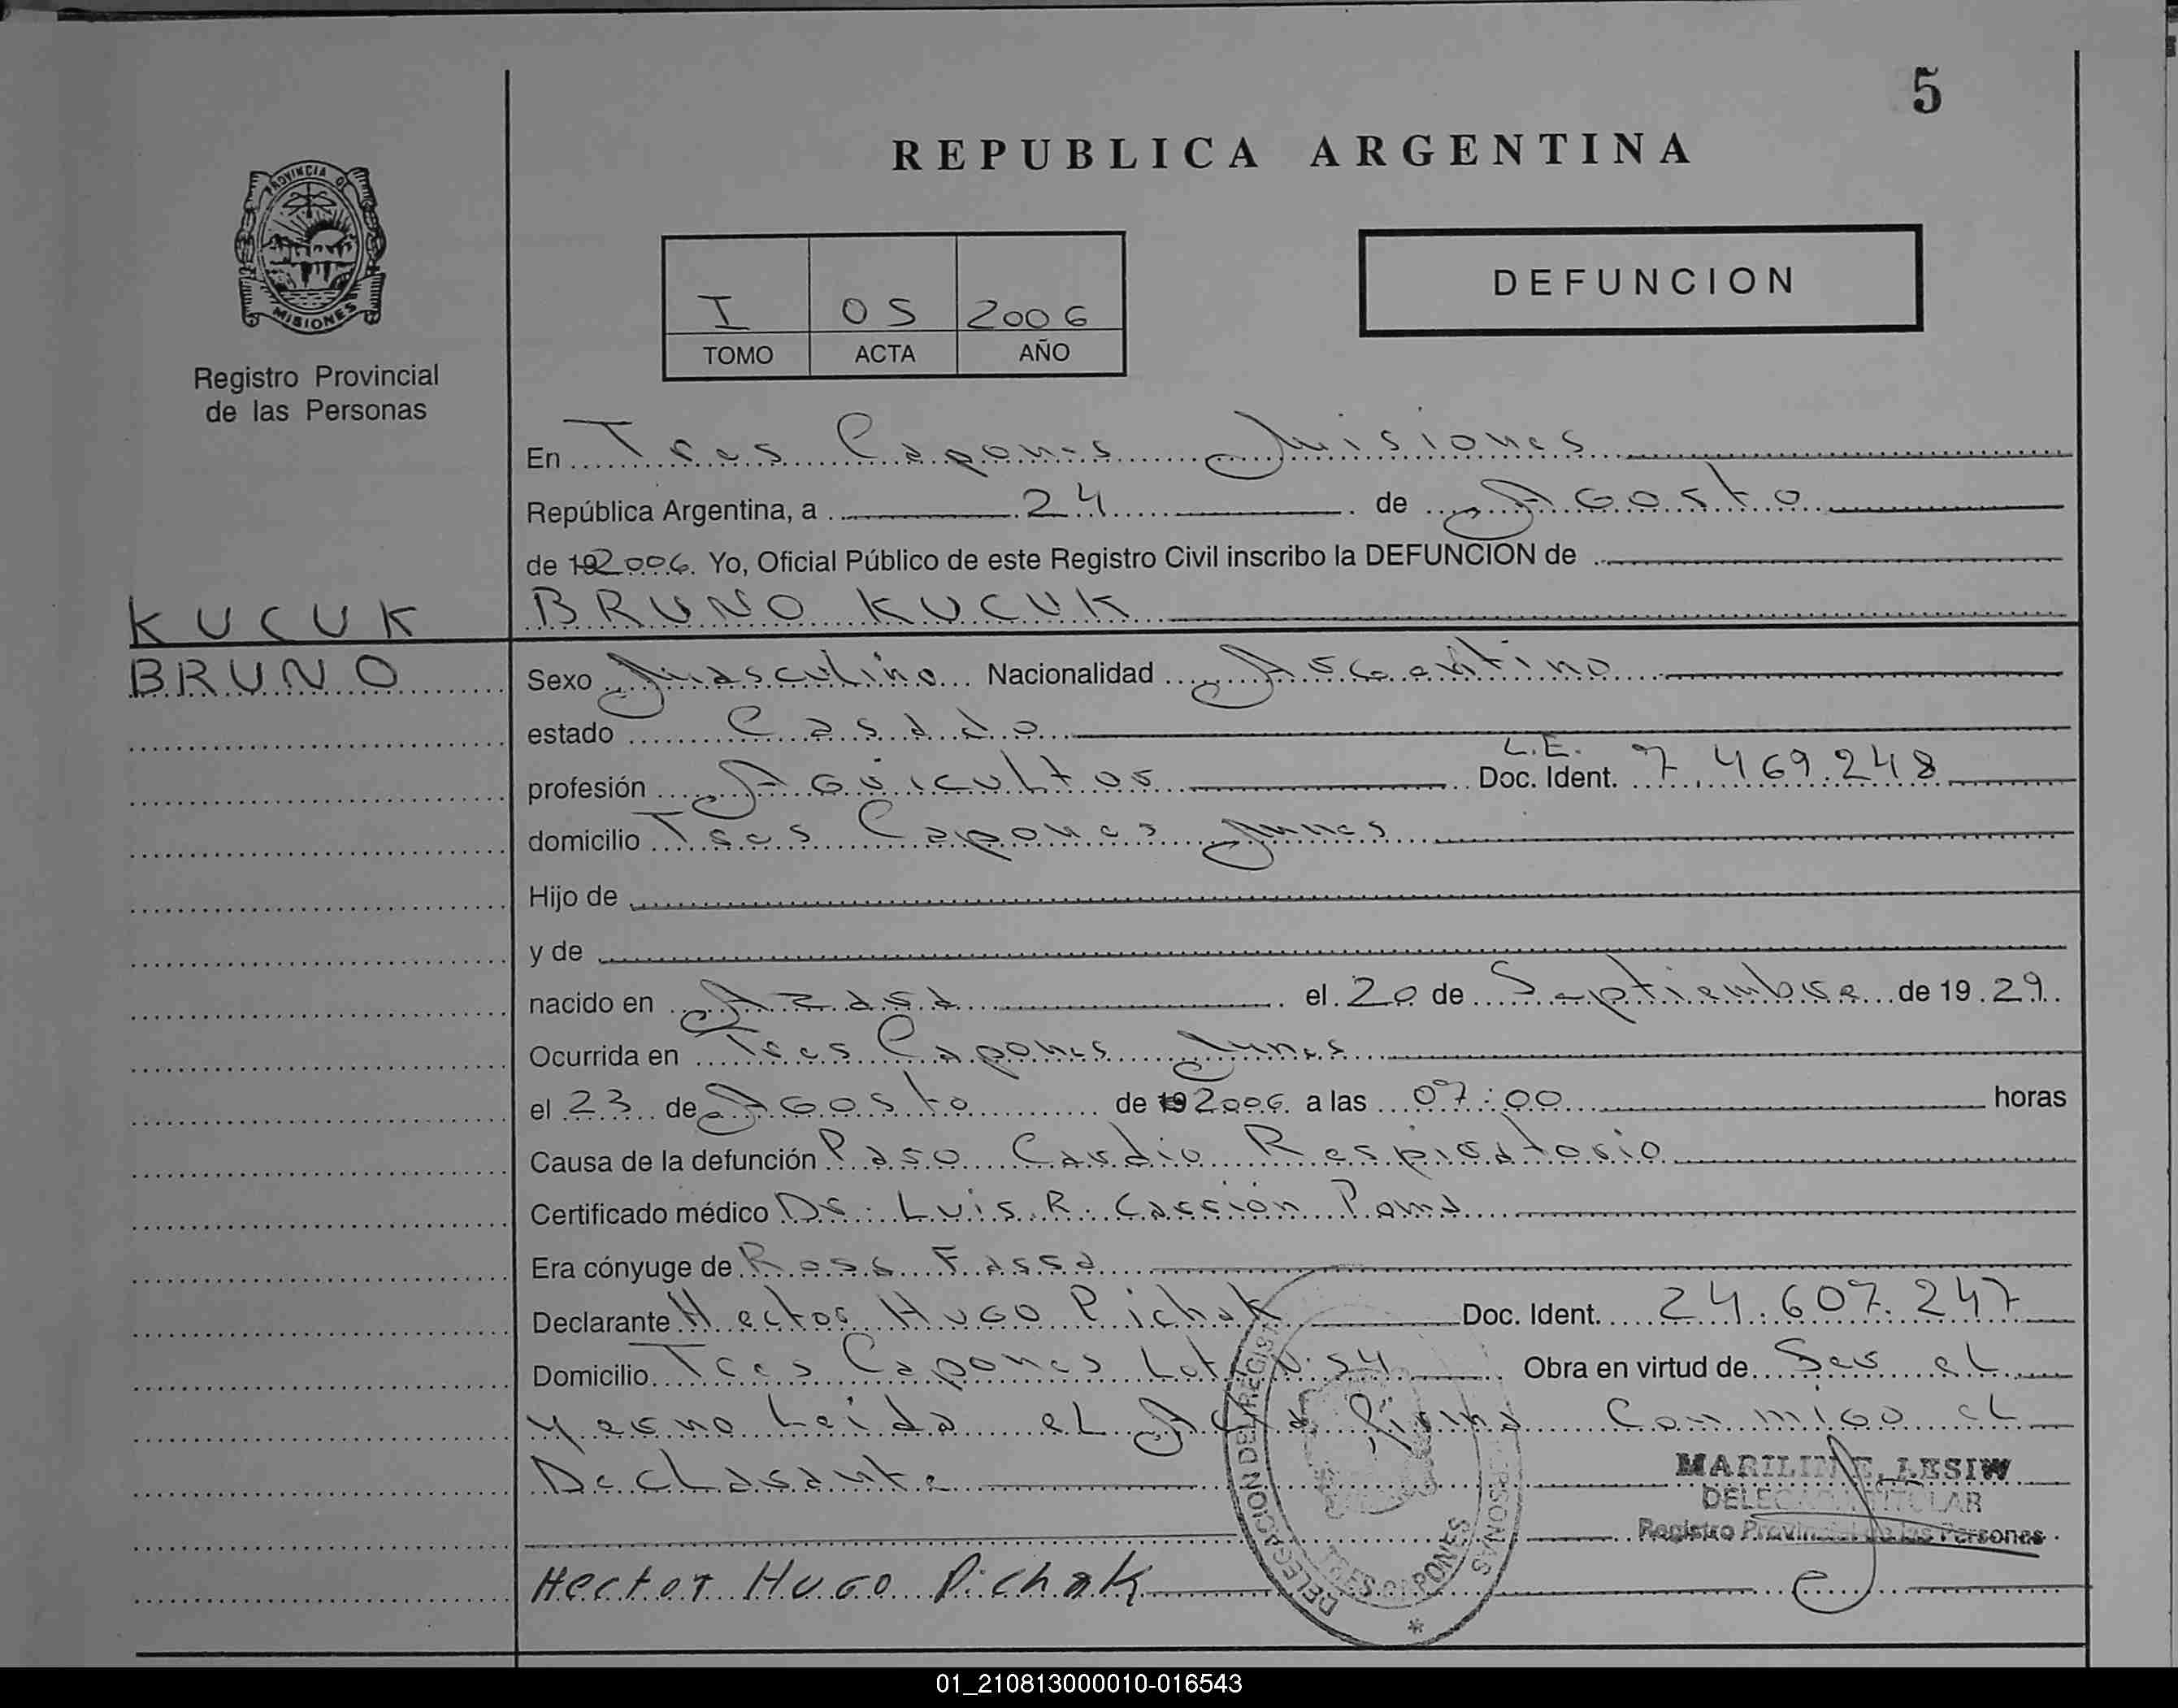 5
REPUBLICA ARGENTINA
PROVINCIA D
MISIONES
Registro Provincial
de las Personas
I 05 2006
TOMO ACTA AÑO
DEFUNCION
En Tres Capones Misiones
República Argentina, a 24 de Agosto
de 192006. Yo, Oficial Público de este Registro Civil inscribo la DEFUNCION de
BRUNO KUCUK
KUCUK
BRUNO
Sexo Masculino Nacionalidad Argentino
estado Casado
profesión Agricultor L.E. Doc. Ident. 7.469.248
domicilio Tres Capones Mnes
Hijo de
y de
nacido en Azara el 20 de Septiembre de 19 29
Ocurrida en Tres Capones Mnes
el 23 de Agosto de 192006 a las 07:00 horas
Causa de la defunción Paro Cardio Respiratorio
Certificado médico Dr. Luis R. Carrion
Era cónyuge de Rosa
Declarante Hector Hugo Pichak Doc. Ident. 24.607.247
Domicilio Tres Capones Lot N: 54 Obra en virtud de Ser el
Yerno Leida el Acta Firma Conmigo el
Declarante
MARILIN E. LESIW
DELEGADA TITULAR
Registro Provincial de las Personas
Hector Hugo Pichak
DELEGACION DEL REGISTRO PERSONAS
TRES CAPONES
01_210813000010-016543